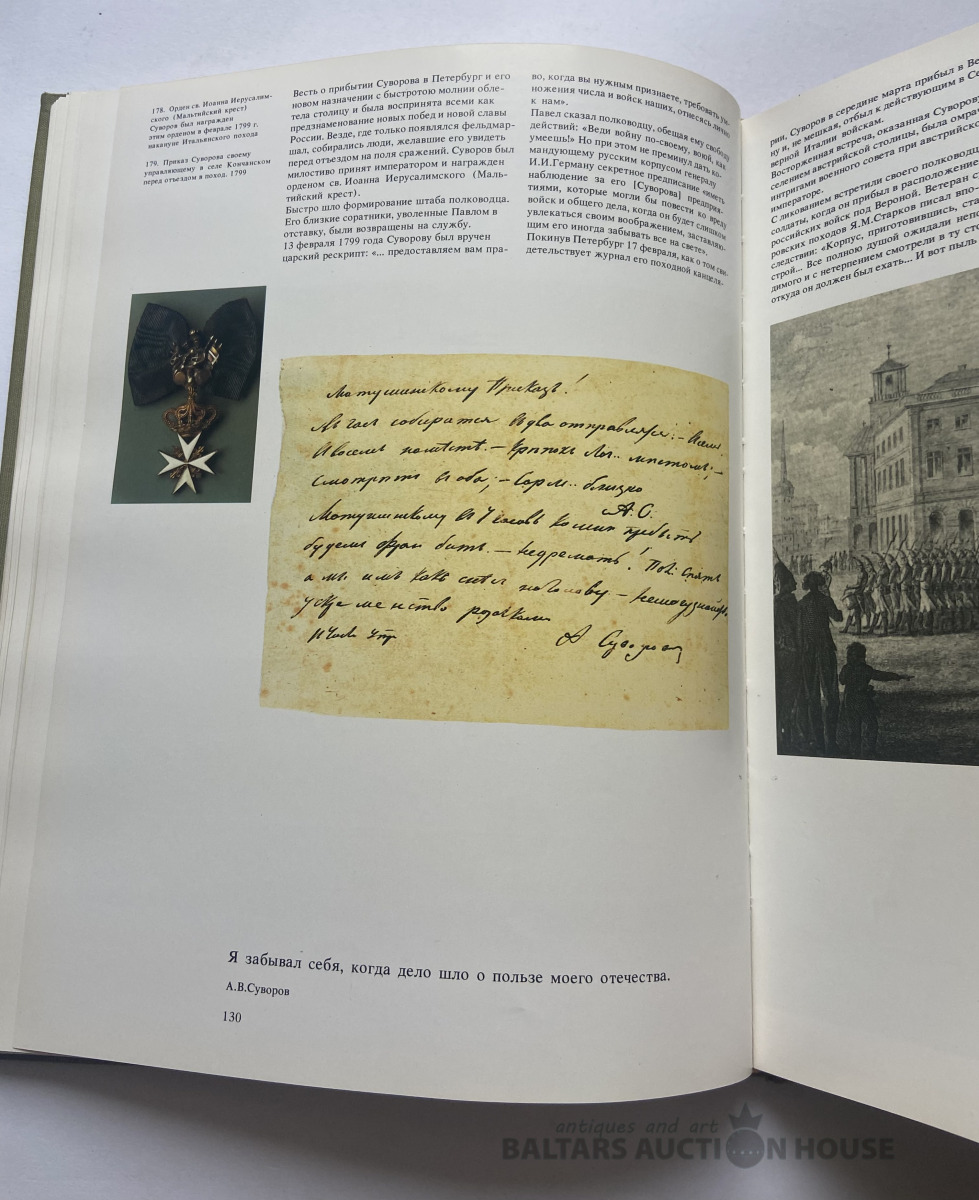 178. Орден св. Иоанна Иерусалим-
ского (Мальтийский крест)
Суворов был награжден
этим орденом в феврале 1799 г.
накануне Итальянского похода
179. Приказ Суворова своему
управляющему в селе Кончанском
перед отъездом в поход. 1799
Весть о прибытии Суворова в Петербург и его
новом назначении с быстротою молнии обле-
тела столицу и была воспринята всеми как
предзнаменование новых побед и новой славы
России. Везде, где только появлялся фельдмар-
шал, собирались люди, желавшие его увидеть
перед отъездом на поля сражений. Суворов был
милостиво принят императором и награжден
орденом св. Иоанна Иерусалимского (Маль-
тийский крест).
Быстро шло формирование штаба полководца.
Его близкие соратники, уволенные Павлом в
отставку, были возвращены на службу.
13 февраля 1799 года Суворову был вручен
царский рескрипт: «... предоставляем вам пра-
во, когда вы нужным признаете, требовать ум-
ножения числа и войск наших, относясь лично
к нам».
Павел сказал полководцу, обещая ему свободу
действий: «Веди войну по-своему, воюй, как
умеешь!» Но при этом не преминул дать ко-
мандующему русским корпусом генералу
И.И.Герману секретное предписание «иметь
наблюдение за его [Суворова] предприя-
тиями, которые могли бы повести ко вреду
войск и общего дела, когда он будет слишком
увлекаться своим воображением, заставляю-
щим его иногда забывать все на свете».
Покинув Петербург 17 февраля, как о том сви-
детельствует журнал его походной канцеля-
рии, Суворов в середине марта прибыл в Ве
ну и, не мешкая, отбыл к действующим в Се
верной Италии войскам.
Восторженная встреча, оказанная Суворову
селением австрийской столицы, была омрач
интригами военного совета при австрийско
императоре.
С ликованием встретили своего полководца
солдаты, когда он прибыл в расположение
российских войск под Вероной. Ветеран с
ровских походов Я.М.Старков писал впо
следствии: «Корпус, приготовившись, ста
строй... Все полною душой ожидали неп
димого и с нетерпением смотрели в ту сто
откуда он должен был ехать... И вот пыли
Матушинскому Приказъ!
А.С.
А Суворов
Я забывал себя, когда дело шло о пользе моего отечества.
А.В.Суворов
130
antiques and art
BALTARS AUCTION HOUSE